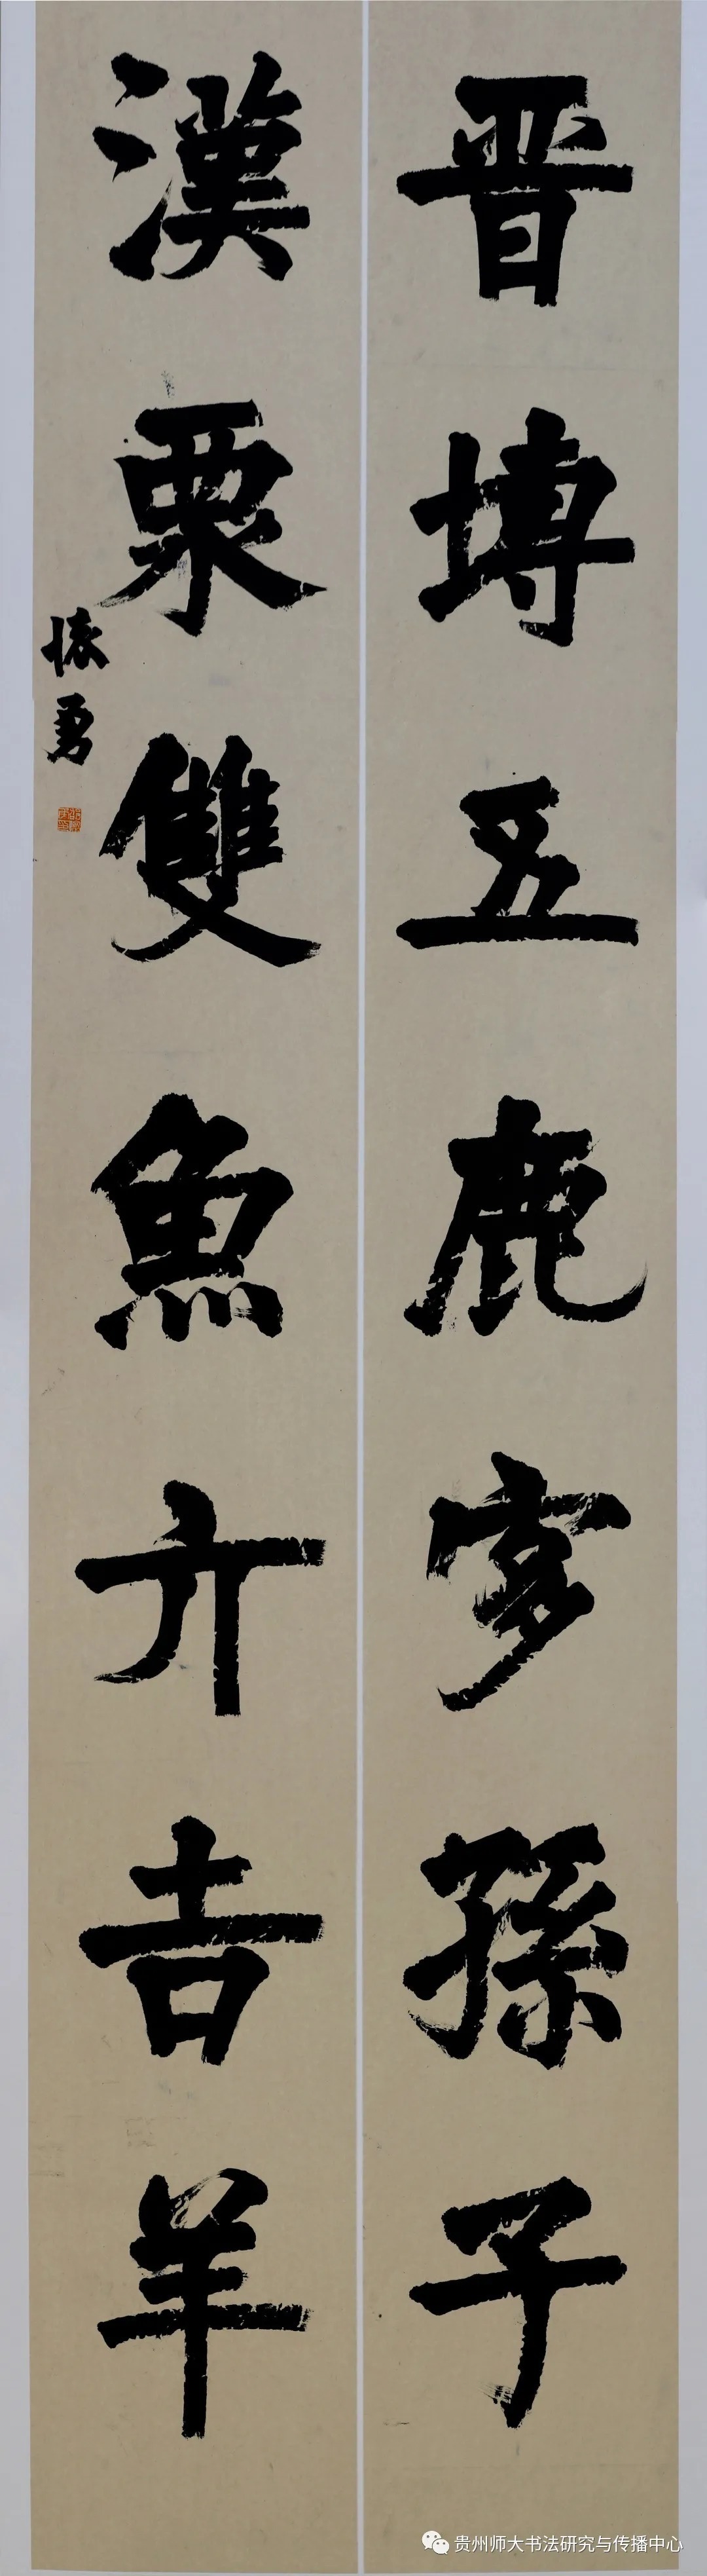 晋塼五鹿宜孫子
漢粟雙魚亣吉羊
勇
贵州师大书法研究与传播中心